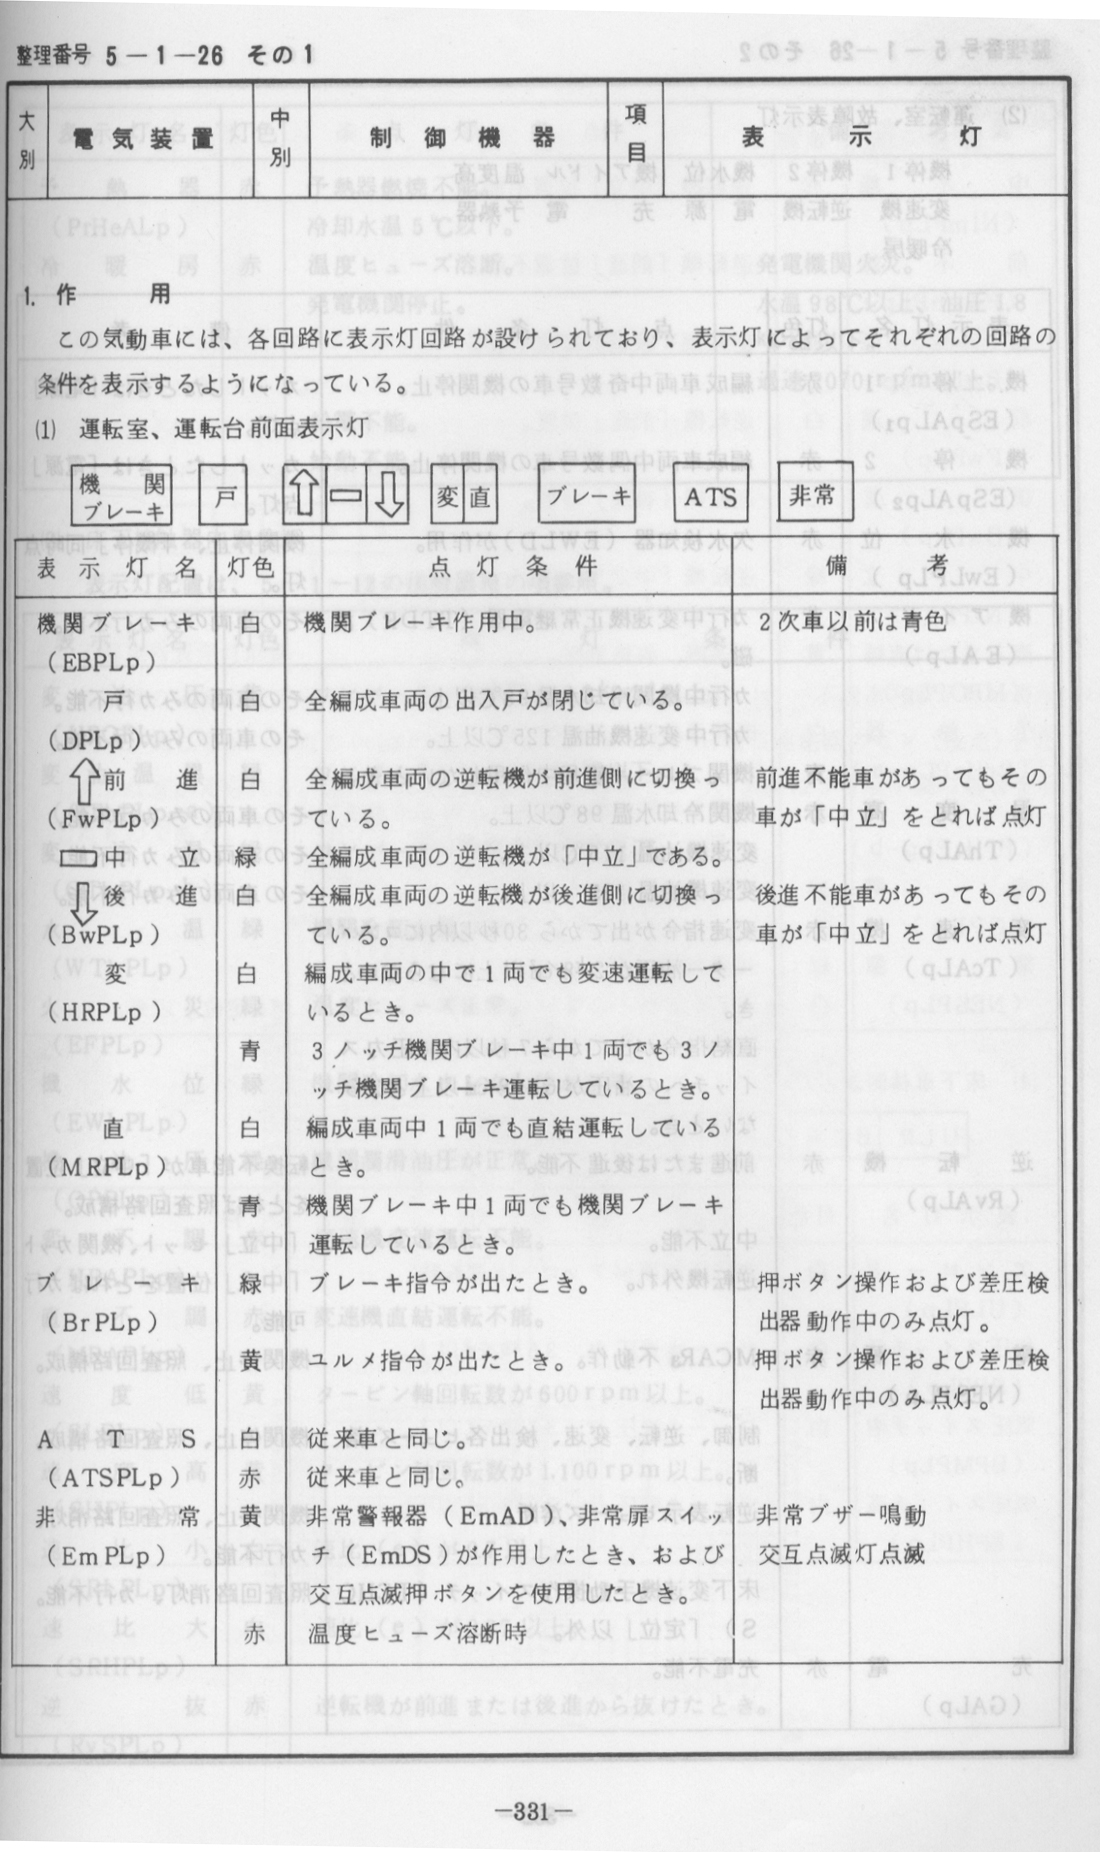 整理番号 5－1－26 その1
大別 電気装置 中別 制御機器 項目 表示灯
1. 作用
この気動車には、各回路に表示灯回路が設けられており、表示灯によってそれぞれの回路の
条件を表示するようになっている。
(1) 運転室、運転台前面表示灯
機関ブレーキ 戸 ⇧ ▭ ⇩ 変 直 ブレーキ ATS 非常
表示灯名 灯色 点灯条件 備考
機関ブレーキ 白 機関ブレーキ作用中。 2次車以前は青色
(EBPLp)
戸 白 全編成車両の出入戸が閉じている。
(DPLp)
⇧前進 白 全編成車両の逆転機が前進側に切換っ 前進不能車があってもその
(FwPLp) ている。 車が「中立」をとれば点灯
▭中立 緑 全編成車両の逆転機が「中立」である。
⇩後進 白 全編成車両の逆転機が後進側に切換っ 後進不能車があってもその
(BwPLp) ている。 車が「中立」をとれば点灯
変 白 編成車両の中で1両でも変速運転して
(HRPLp) いるとき。
青 3ノッチ機関ブレーキ中1両でも3ノ
ッチ機関ブレーキ運転しているとき。
直 白 編成車両中1両でも直結運転している
(MRPLp) とき。
青 機関ブレーキ中1両でも機関ブレーキ
運転しているとき。
ブレーキ 緑 ブレーキ指令が出たとき。 押ボタン操作および差圧検
(BrPLp) 出器動作中のみ点灯。
黄 ユルメ指令が出たとき。 押ボタン操作および差圧検
出器動作中のみ点灯。
ATS 白 従来車と同じ。
(ATSPLp) 赤 従来車と同じ。
非常 黄 非常警報器(EmAD)、非常扉スイッ 非常ブザー鳴動
(EmPLp) チ(EmDS)が作用したとき、および 交互点滅灯点滅
交互点滅押ボタンを使用したとき。
赤 温度ヒューズ溶断時
—331—